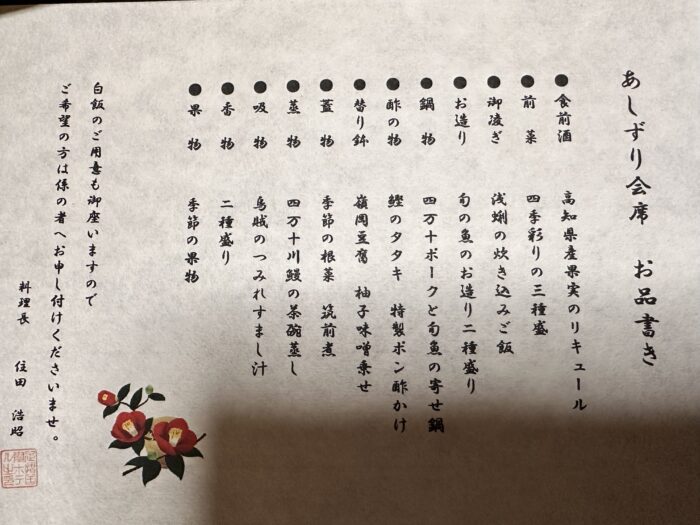 あしずり会席　お品書き
●食前酒　高知県産果実のリキュール
●前菜　四季彩りの三種盛
●御凌ぎ　浅蜊の炊き込みご飯
●お造り　旬の魚のお造り二種盛り
●鍋物　四万十ポークと旬魚の寄せ鍋
●酢の物　鰹のタタキ　特製ポン酢かけ
●替り鉢　嶺岡豆腐　柚子味噌乗せ
●蓋物　季節の根菜　筑前煮
●蒸物　四万十川鰻の茶碗蒸し
●吸物　烏賊のつみれすまし汁
●香物　二種盛り
●果物　季節の果物
白飯のご用意も御座いますので
ご希望の方は係の者へお申し付けくださいませ。
料理長　住田　浩昭